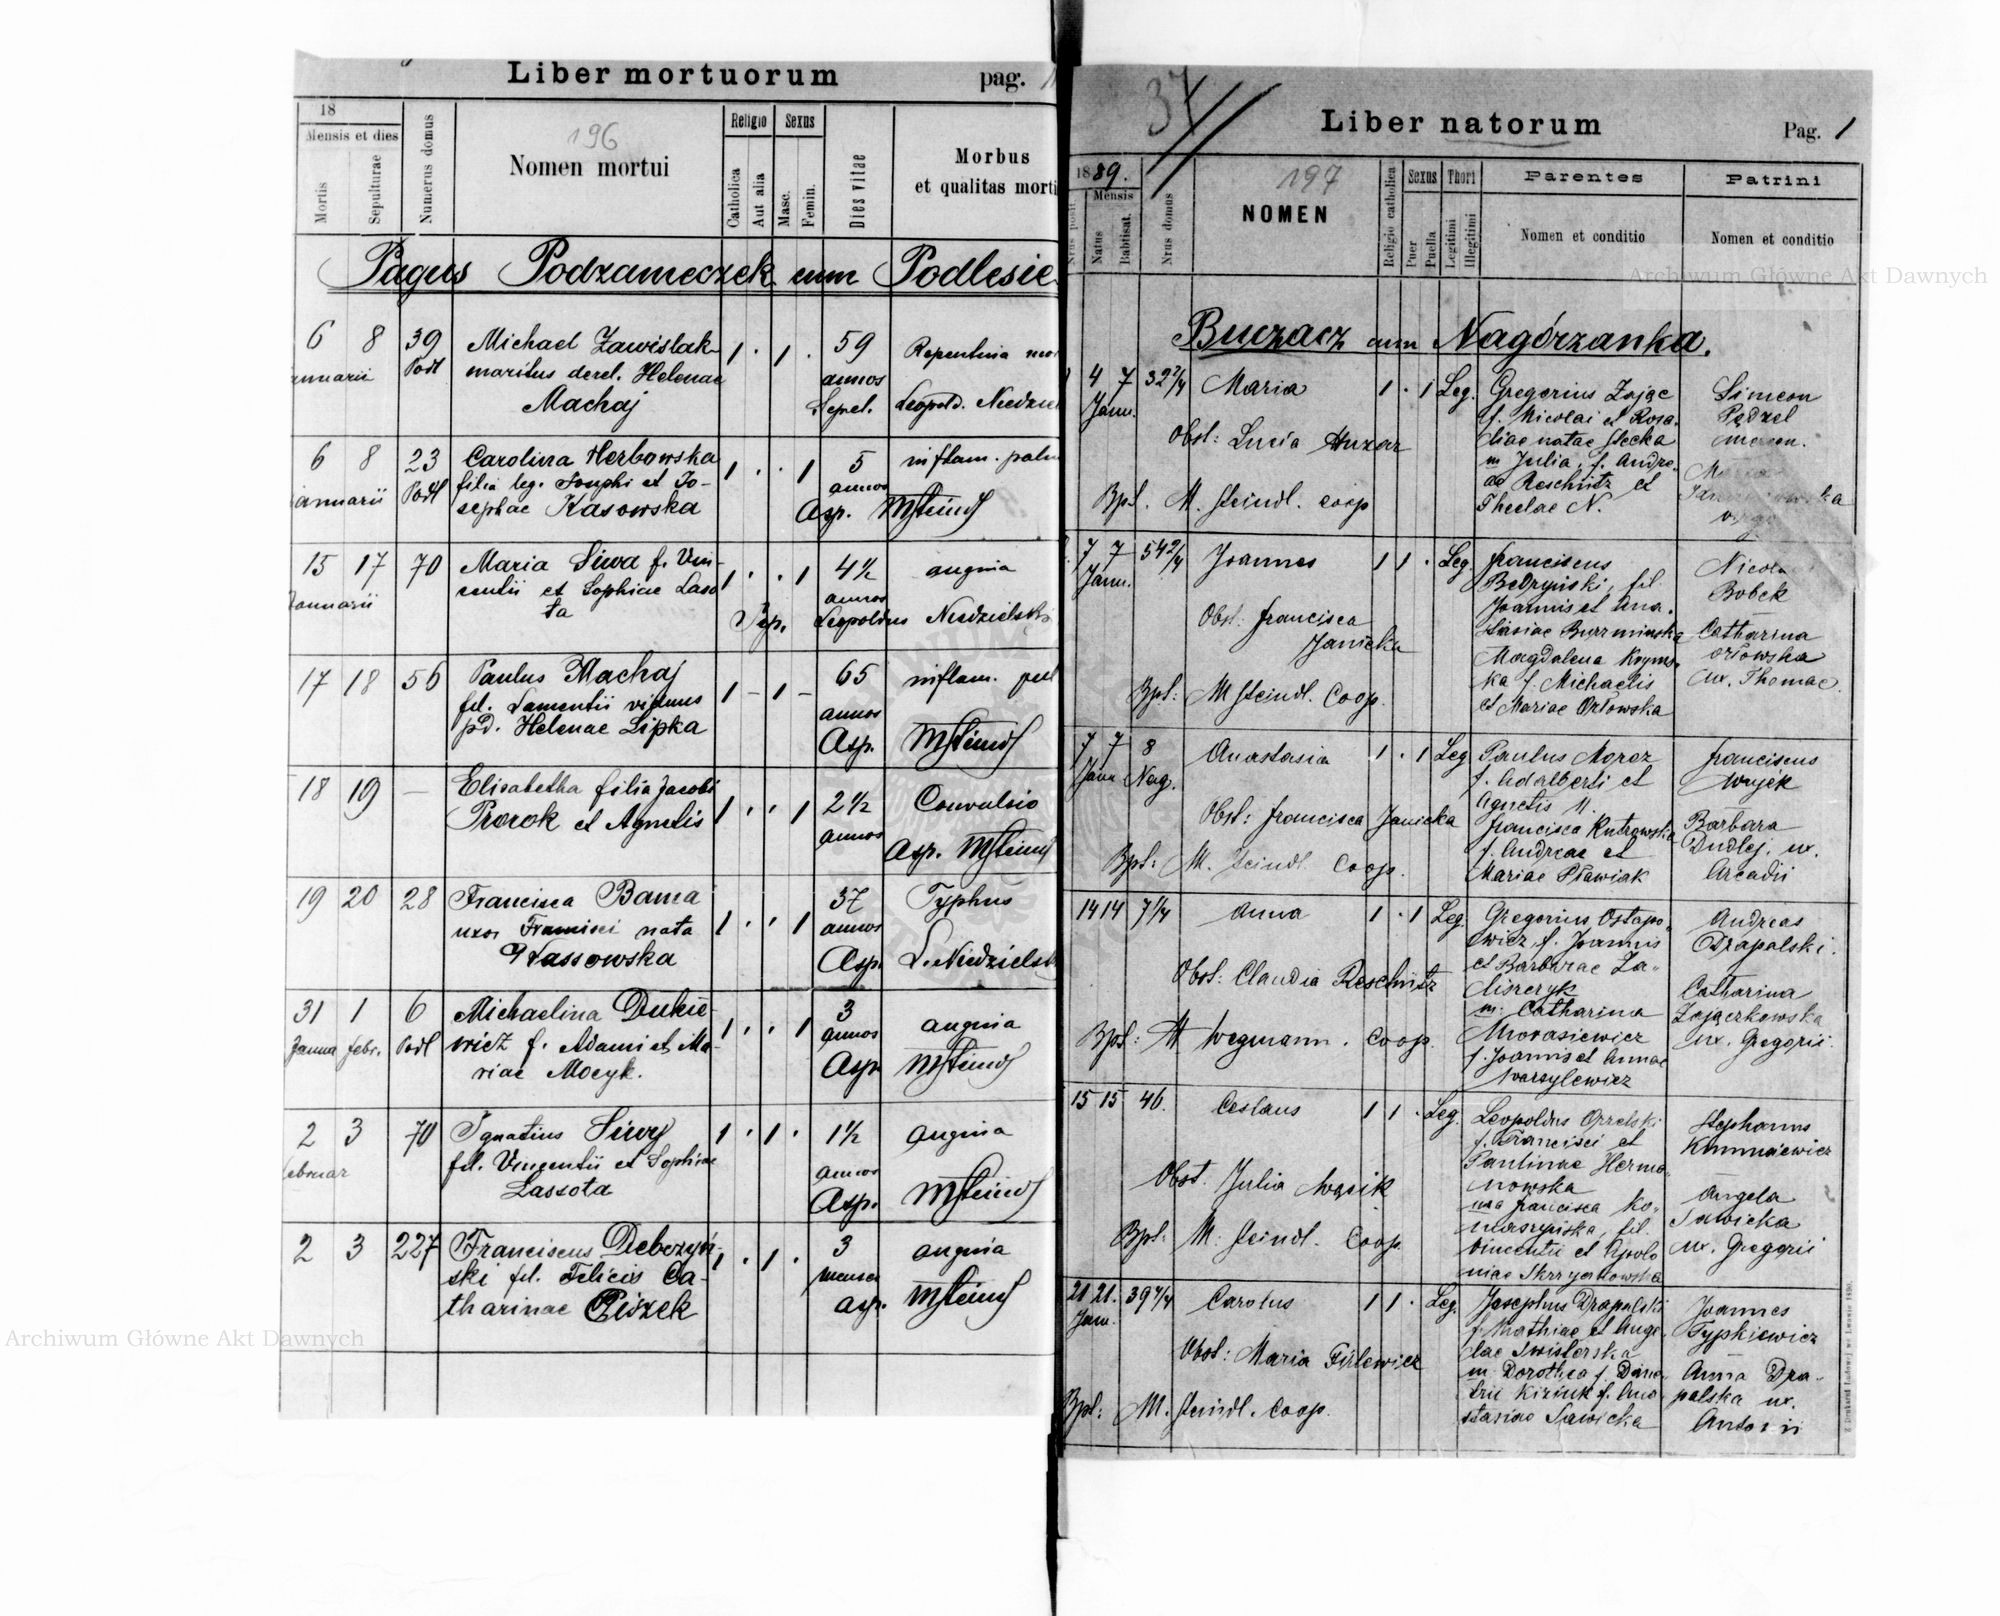 Liber mortuorum pag. 1
18
Mensis et dies
Mortis
Sepulturae
Numerus domus
196
Nomen mortui
Religio
Catholica
Aut alia
Sexus
Masc.
Femin.
Dies vitae
Morbus
et qualitas morti
Pagus Podzameczek cum Podlesie
6 8 39 Michael Zawislak 1 · 1 · 59 Repentina
Januarii Podl maritus derel. Helenae annos
Machaj Sepel. Leopold. Niedziel
6 8 23 Carolina Herbowska 1 · · 1 5 inflam. pulm
Januarii Podl filia leg. Josephi et Jo- annos
sephae Kasowska Asp. MSteindl
15 17 70 Maria Siwa f. Vin- 1 · · 1 4½ angina
Januarii centii et Sophiae Laso annos
ta Sep. Leopoldus Niedzielski
17 18 56 Paulus Machaj 1 - 1 - 65 inflam. pul
fil. Laurentii viduus annos
pd. Helenae Lipka Asp. MSteindl
18 19 — Elisabetha filia Jacobi 1 · · 1 2½ Convulsio
Prorok et Agnetis annos
Asp. MSteindl
19 20 28 Francisca Bama 1 · · 1 37 Typhus
uxor Francisci nata annos
Wassowska Asp. L. Niedzielsk
31 1 6 Michaelina Dukie- 1 · · 1 3 angina
Janua febr. Podl wicz f. Adami et Ma- annos
riae Mocyk. Asp MSteindl
2 3 70 Ignatius Siwy 1 · 1 · 1½ angina
februar fil. Vincentii et Sophiae annos
Lassota Asp. MSteindl
2 3 227 Franciscus Debczyń- 1 · 1 · 3 angina
ski fil. Felicis Ca- menses
tharinae Piszek Asp. MSteindl
37
Liber natorum Pag. 1
1889.
Mensis
Nrus posit.
Natus
Babtisat.
Nrus domus
197
NOMEN
Religio catholica
Sexus
Puer
Puella
Thori
Legitimi
Illegitimi
Parentes
Nomen et conditio
Patrini
Nomen et conditio
Archiwum Główne Akt Dawnych
Buczacz cum Nagórzanka.
4 7 32 2/4 Maria 1 · 1 Leg. Gregorius Zając Simeon
Jann. f. Nicolai et Rosa- Pędzel
Obst: Lucia Huzar liae natae Slecka
m Julia, f. Andre-
ae Reschütz et
Bpt. M. Steindl. coop Theclae N.
7 7 542/4 Joannes 1 1 · Leg. Franciscus Nicola
Jann. Bedryński, fil. Bobek
Obst: Francisca Joannis et Ana-
Janicka stasiae Burzminska Catharina
Magdalena Kryms- Orlowska
ka f. Michaelis ux. Thomae.
Bpt: M Steindl. Coop. et Mariae Orlowska
7 7 8 Anastasia 1 · 1 Leg Paulus Moroz Franciscus
Jann Nag. f. Adalberti et Wujek
Agnetis N.
Obst: Francisca Janicka Francisca Kutrowska Barbara
f. Andreae et Dudlej, ux.
Bpt: M. Steindl Coop. Mariae Pławiak Arcadii
14 14 7 1/4 Anna 1 · 1 Leg. Gregorius Ostapo- Andreas
wicz, f. Joannis Drapalski.
Obst: Claudia Reschütz et Barbarae Za-
liszczyk Catharina
m: Catharina Zajączkowska
Bpt: M Wegmann. Coop. Morasiewicz ux. Gregorii.
f. Joannis et Annae
Warsylewicz
15 15 46. Ceslaus 1 1 · Leg. Leopoldus Orzelski Stephanus
f. Francisci et Kunaszewicz
Paulinae Hermo-
Obst. Julia Wąsik nowska Angela
ma Francisca Ko- Sawicka
maszyńska, fil. ux. Gregorii
Bpt: M. Steindl. Coop. Vincentii et Apolo
niae Skrzydlowska
21 21. 39 4/4 Carolus 1 1 · Leg. Josephus Drapalski Joannes
Jann. f. Mathiae et Ange- Typkiewicz
lae Swisterska
Obst: Maria Firlewicz m. Dorothea f. Dime- Anna Dra-
trii Kiriuk f. Ana- palska ux.
Bpt: M. Steindl. Coop. stasiae Sawicka Antonii
Archiwum Główne Akt Dawnych